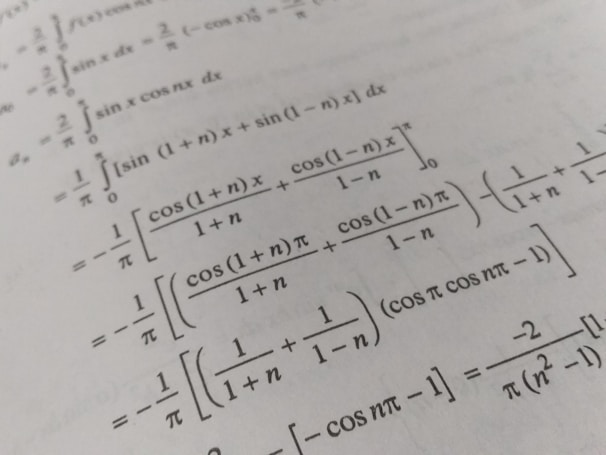 = 2/π ∫₀ f(x) cos nx
= 2/π ∫₀ sin x dx = 2/π (− cos x)₀^π =
aₙ = 2/π ∫₀ sin x cos nx dx
= 1/π ∫₀^π [sin (1 + n) x + sin (1 − n) x] dx
= − 1/π [ cos (1 + n) x / 1 + n + cos (1 − n) x / 1 − n ]₀^π
= − 1/π [ ( cos (1 + n) π / 1 + n + cos (1 − n) π / 1 − n ) − ( 1 / 1 + n + 1 / 1 −
= − 1/π [ ( 1 / 1 + n + 1 / 1 − n ) (cos π cos nπ − 1) ]
[− cos nπ − 1] = −2 / π (n² − 1) [1